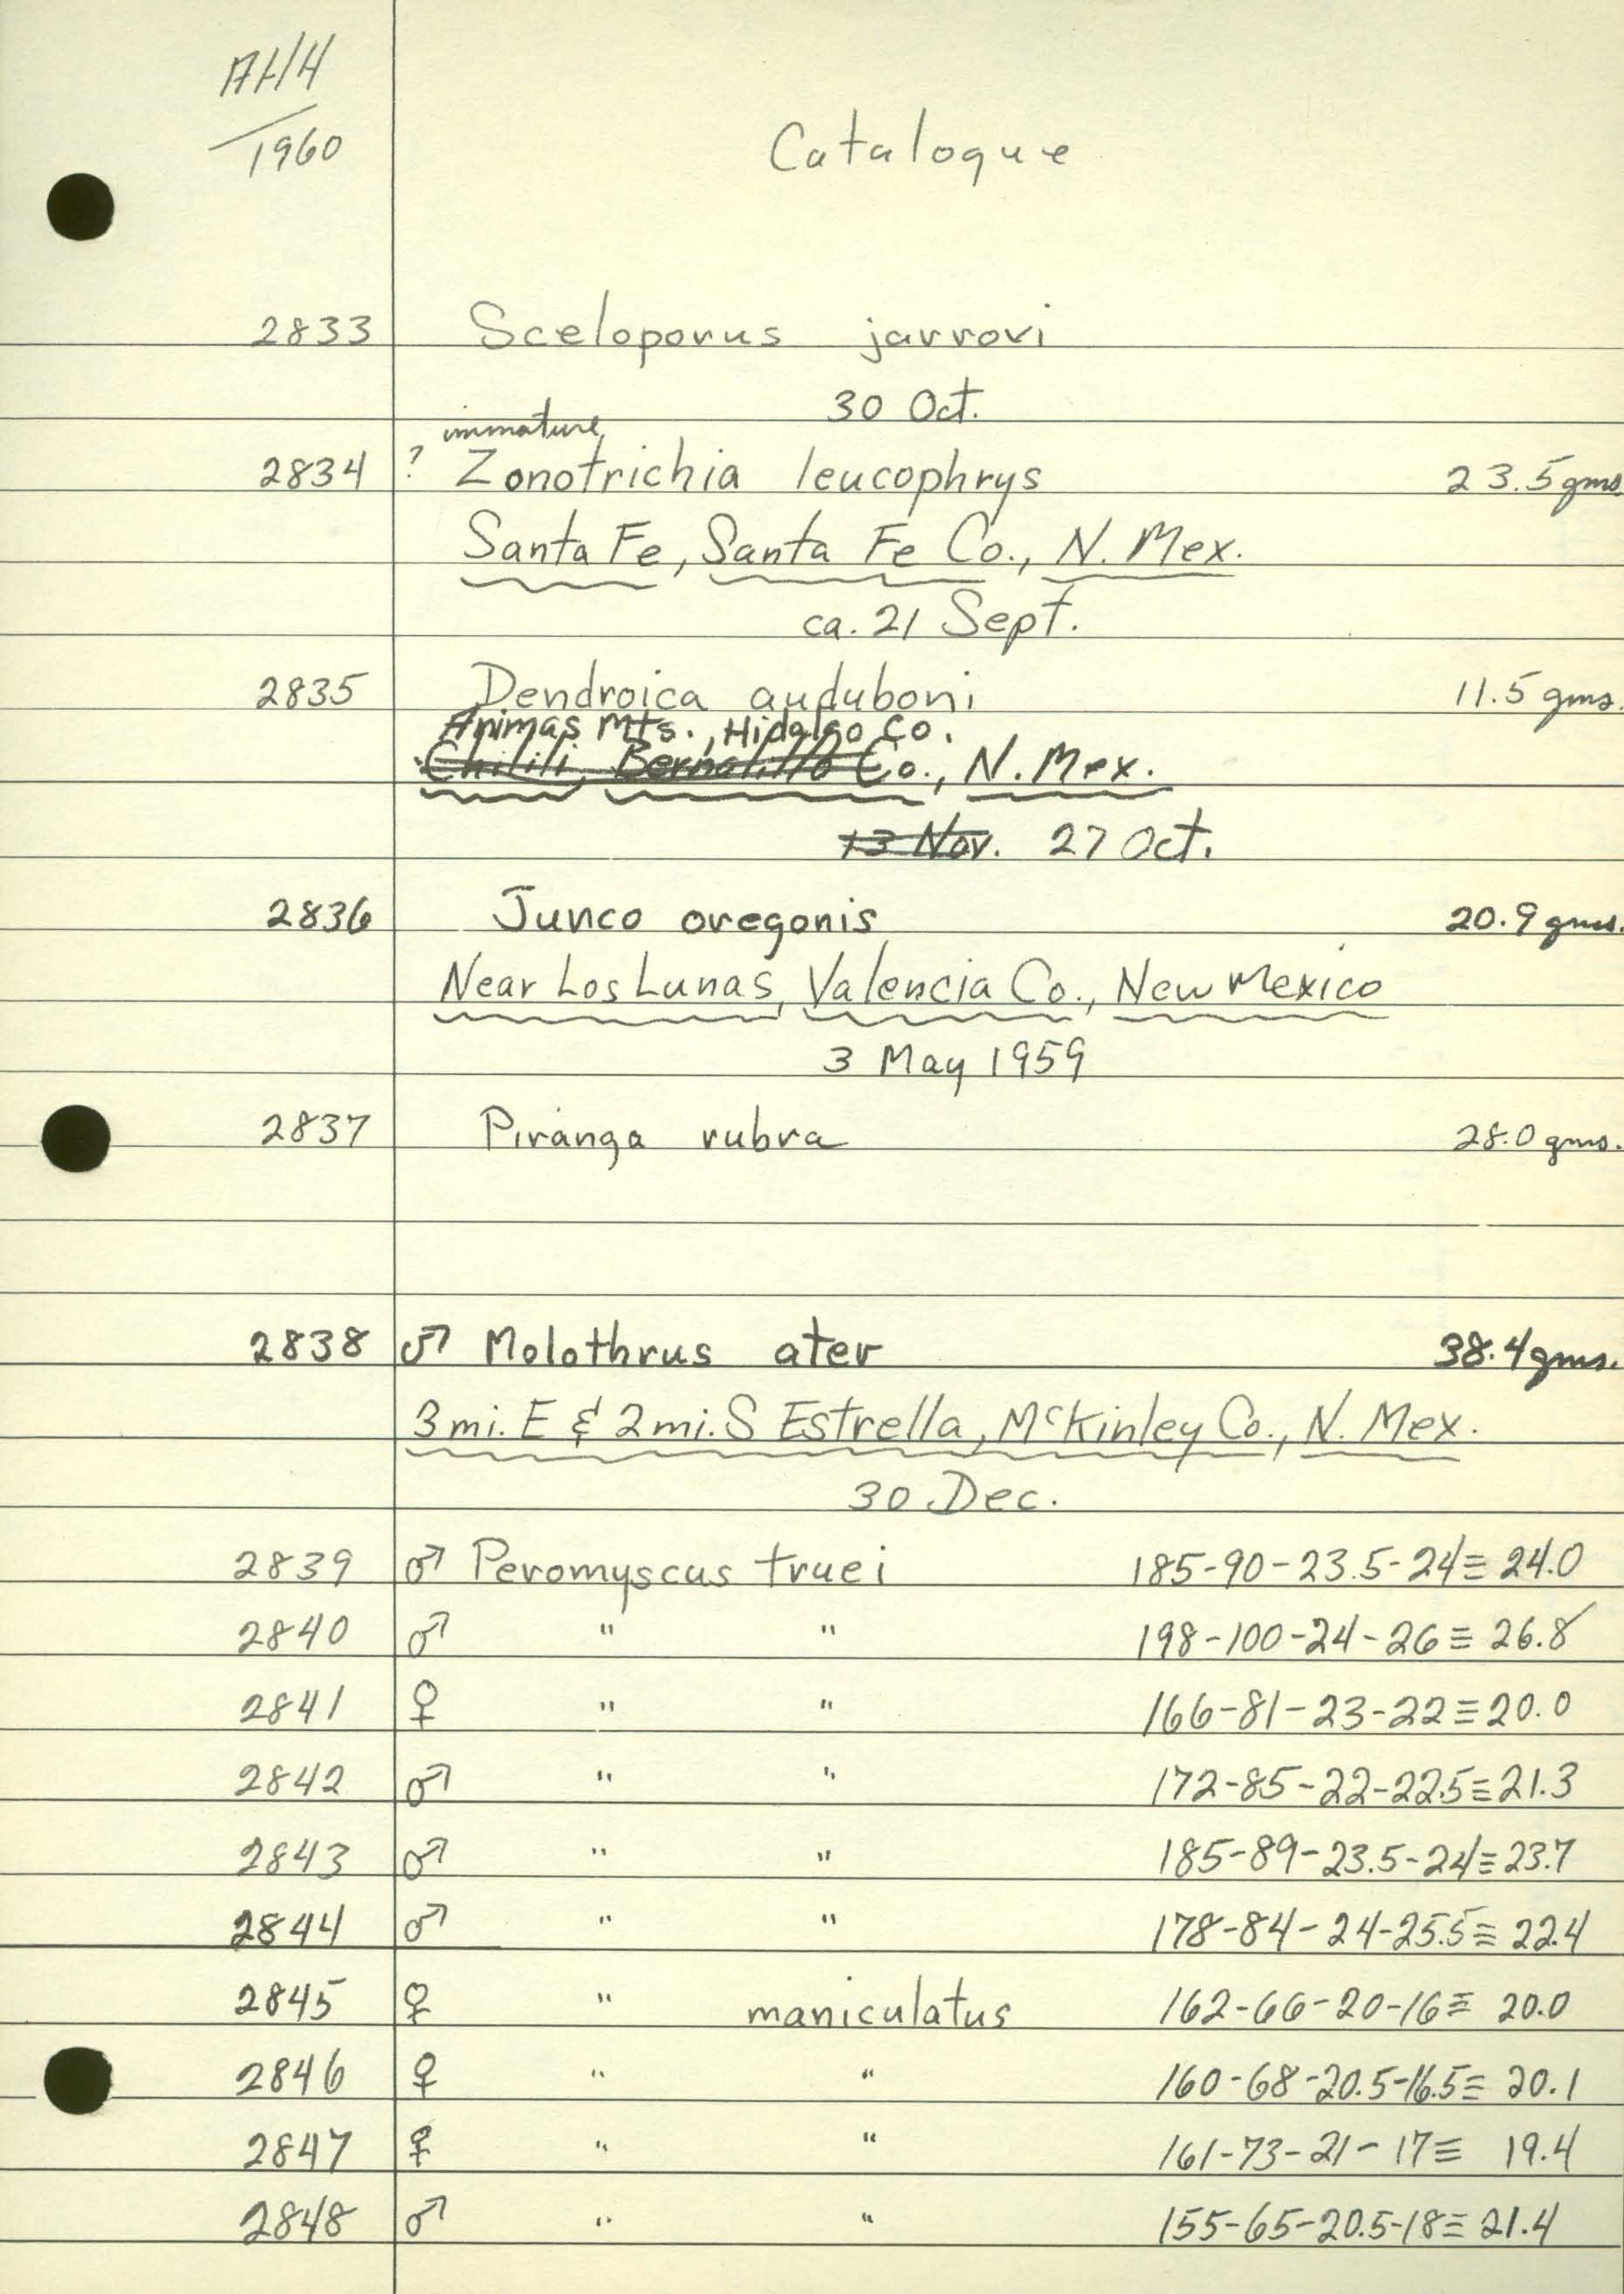 AHH
1960
Catalogue
2833 Sceloporus jarrovi
30 Oct.
immature
2834 ? Zonotrichia leucophrys 23.5 gms.
Santa Fe, Santa Fe Co., N. Mex.
ca. 21 Sept.
2835 Dendroica auduboni 11.5 gms.
Animas Mts., Hidalgo Co.
Chilili, Bernalillo Co., N. Mex.
13 Nov. 27 Oct.
2836 Junco oregonis 20.9 gms.
Near Los Lunas, Valencia Co., New Mexico
3 May 1959
2837 Piranga rubra 28.0 gms.
2838 ♂ Molothrus ater 38.4 gms.
3 mi. E & 2 mi. S Estrella, McKinley Co., N. Mex.
30 Dec.
2839 ♂ Peromyscus truei 185-90-23.5-24≡24.0
2840 ♂ " " 198-100-24-26≡26.8
2841 ♀ " " 166-81-23-22≡20.0
2842 ♂ " " 172-85-22-22.5≡21.3
2843 ♂ " " 185-89-23.5-24≡23.7
2844 ♂ " " 178-84-24-25.5≡22.4
2845 ♀ " maniculatus 162-66-20-16≡20.0
2846 ♀ " " 160-68-20.5-16.5≡20.1
2847 ♀ " " 161-73-21-17≡19.4
2848 ♂ " " 155-65-20.5-18≡21.4